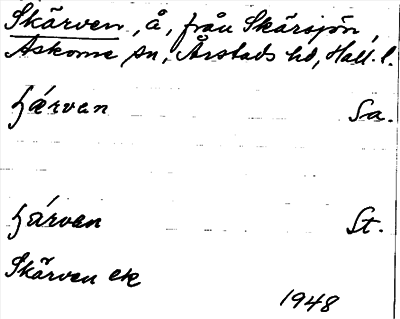 Skärven, å, från Skärsjön,
Askome sn, Årstads hd, Hall. l.
ɧærvan Sa.
ɧárven St.
Skärven ek
1948